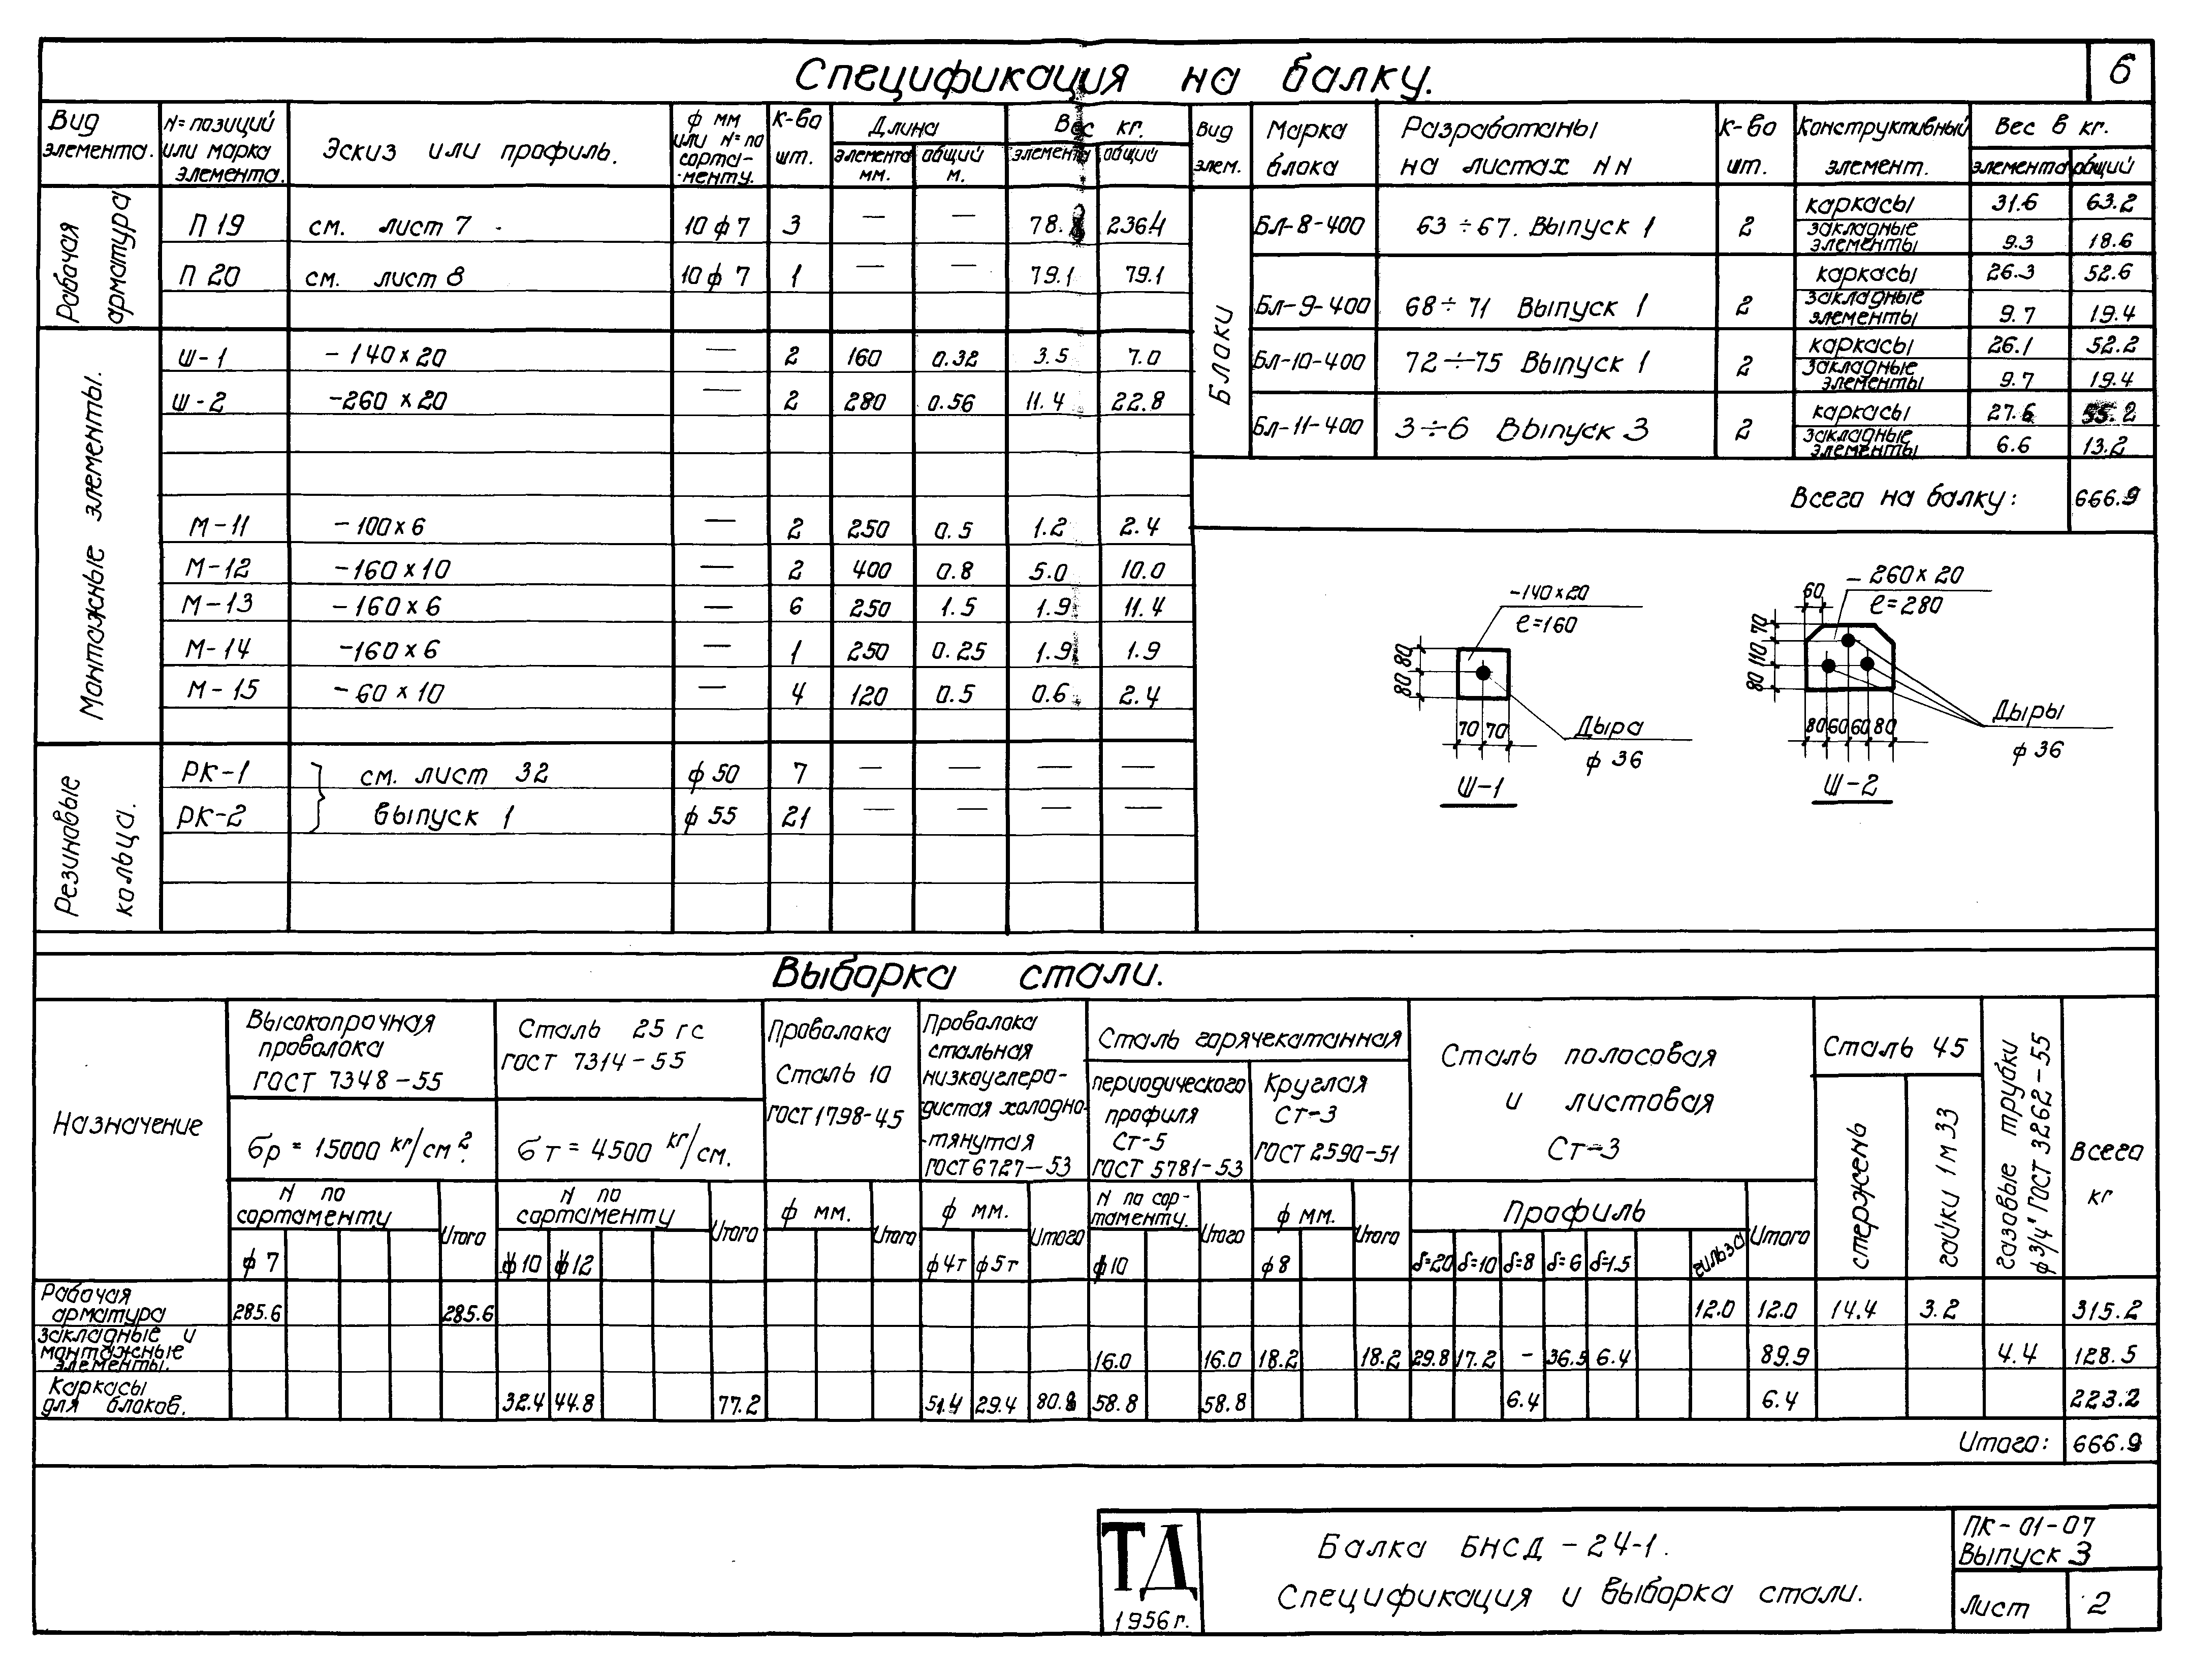 Спецификация на балку.
6
Вид элемента.
N= позиций или марка элемента.
Эскиз или профиль.
ф мм или N= по сорта-менту.
К-во шт.
Длина
элемента мм.
общий м.
Вес кг.
элемента
общий
Рабочая арматура
П 19 см. лист 7 10 ф 7 3 — — 236.4
П 20 см. лист 8 10 ф 7 1 — — 79.1 79.1
Монтажные элементы.
Ш-1 - 140 х 20 — 2 160 0.32 3.5 7.0
Ш-2 -260 х 20 — 2 280 0.56 11.4 22.8
М-11 - 100 х 6 — 2 250 0.5 1.2 2.4
М-12 -160 х 10 — 2 400 0.8 5.0 10.0
М-13 -160 х 6 — 6 250 1.5 1.9 11.4
М-14 -160 х 6 — 1 250 0.25 1.9 1.9
М-15 - 60 х 10 — 4 120 0.5 0.6 2.4
Резиновые кольца.
РК-1 см. лист 32 ф 50 7 — — — —
РК-2 выпуск 1 ф 55 21 — — — —
Вид элем.
Марка блока
Разработаны на листах NN
К-во шт.
Конструктивный элемент.
Вес в кг.
элемента
общий
Блоки
Бл-8-400 63÷67. Выпуск 1 2
каркасы 31.6 63.2
закладные элементы 9.3 18.6
Бл-9-400 68÷71 Выпуск 1 2
каркасы 26.3 52.6
закладные элементы 9.7 19.4
Бл-10-400 72÷75 Выпуск 1 2
каркасы 26.1 52.2
закладные элементы 9.7 19.4
Бл-11-400 3÷6 Выпуск 3 2
каркасы 27.6 55.2
закладные элементы 6.6 13.2
Всего на балку: 666.9
-140х20
ℓ=160
80 80
70 70
Дыра
ф 36
Ш-1
- 260х 20
ℓ=280
60
80 110 70
80 60 60 80
Дыры
ф 36
Ш-2
Выборка стали.
Назначение
Высокопрочная проволока
ГОСТ 7348-55
бр = 15000 кг/см².
N по сортаменту
Итого
ф 7
Сталь 25 гс
ГОСТ 7314-55
б т = 4500 кг/см.
N по сортаменту
Итого
ф10 ф12
Проволока
Сталь 10
ГОСТ 1798-45
ф мм.
Итого
Проволока
стальная
низкоуглеро-
дистая холодно-
-тянутая
ГОСТ 6727-53
ф мм.
Итого
ф4т ф5т
Сталь горячекатанная
периодического
профиля
Ст-5
ГОСТ 5781-53
N по сор-
таменту.
Итого
ф10
Круглая
Ст-3
ГОСТ 2590-51
ф мм.
Итого
ф8
Сталь полосовая
и листовая
Ст-3
Профиль
Итого
δ=20 δ=10 δ=8 δ=6 δ=1.5 гильза
Сталь 45
стержень
гайки 1М33
газовые трубки
ф 3/4" ГОСТ 3262-55
Всего
кг
Рабочая арматура 285.6 285.6 12.0 12.0 14.4 3.2 315.2
закладные и монтажные элементы. 16.0 16.0 18.2 18.2 29.8 17.2 - 36.5 6.4 89.9 4.4 128.5
Каркасы для блоков. 32.4 44.8 77.2 51.4 29.4 58.8 58.8 6.4 6.4 223.2
Итого: 666.9
ТД
1956 г.
Балка БНСД - 24-1.
Спецификация и выборка стали.
ПК-01-07
Выпуск 3
Лист 2